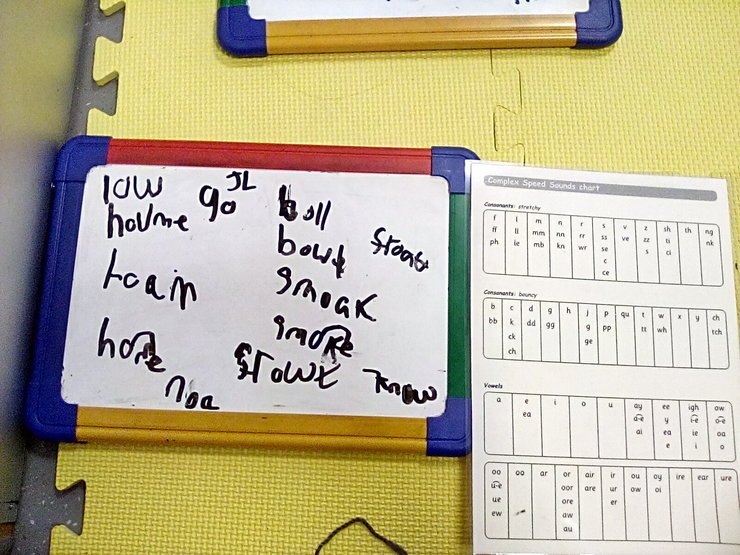 low
go
JL
home
boll
bowt
stoat
toain
smoak
home
smoke
stowt
know
noa
Complex Speed Sounds chart
Consonants: stretchy
f l m n r s v z sh th ng
ff ll mm nn rr ss ve zz ti nk
ph le mb kn wr se s ci
c
ce
Consonants: bouncy
b c d g h j p qu t w x y ch
bb k dd gg g pp tt wh tch
ck ge
ch
Vowels
a e i o u ay ee igh ow
ea a-e y i-e o-e
ai ea ie oa
e i o
oo oo ar or air ir ou oy ire ear ure
u-e oor are ur ow oi
ue ore er
ew aw
au